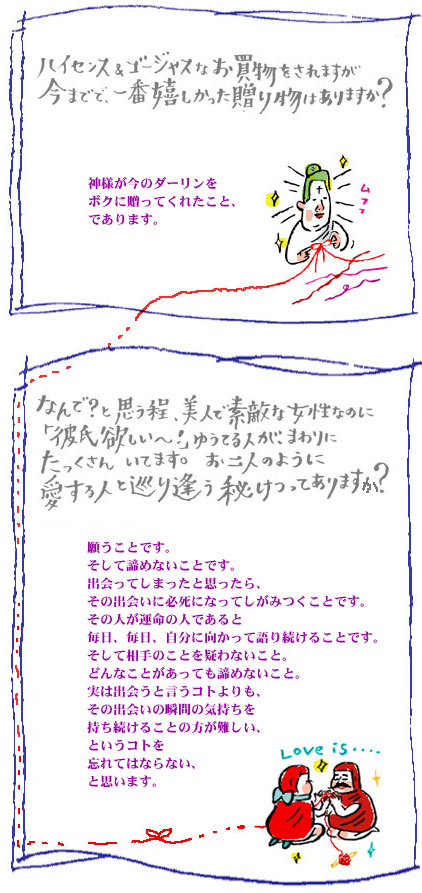 ハイセンス&ゴージャスなお買物をされますが
今までで、一番嬉しかった贈り物はありますか?
神様が今のダーリンを
ボクに贈ってくれたこと、
であります。
ムフフ
なんで?と思う程、美人で素敵な女性なのに
「彼氏欲しい〜!」ゆうてる人が、まわりに
たっくさん いてます。 お二人のように
愛する人と巡り逢う秘けつってありますか?
願うことです。
そして諦めないことです。
出会ってしまったと思ったら、
その出会いに必死になってしがみつくことです。
その人が運命の人であると
毎日、毎日、自分に向かって語り続けることです。
そして相手のことを疑わないこと。
どんなことがあっても諦めないこと。
実は出会うと言うコトよりも、
その出会いの瞬間の気持ちを
持ち続けることの方が難しい、
というコトを
忘れてはならない、
と思います。
Love is....